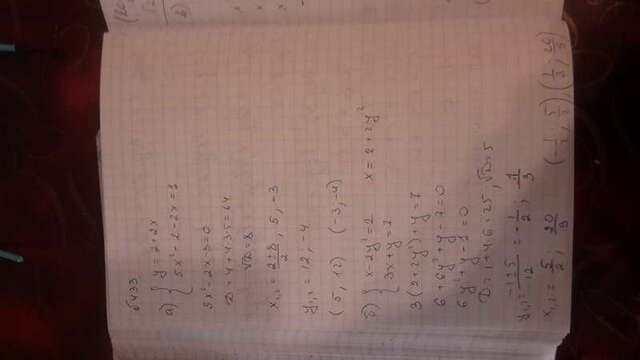 а) { y = 2 + 2x
5x² - 2 - 2x = 1
5x² - 2x - 3 = 0
D = 4 + 4·3·5 = 64
√D = 8
x₁,₂ = (2 ± 8)/2; 5, -3
y₁,₂ = 12, -4
(5, 12) (-3, -4)
б) { x - 2y² = 2 x = 2 + 2y²
3x + y = 7
3(2 + 2y²) + y = 7
6 + 6y² + y - 7 = 0
6y² + y - 1 = 0
D = 1 + 4·6 = 25, √D = 5
y₁,₂ = (-1 ± 5)/12 = -1/2; 1/3
x₁,₂ = 5/2; (-1/2; 5/2),